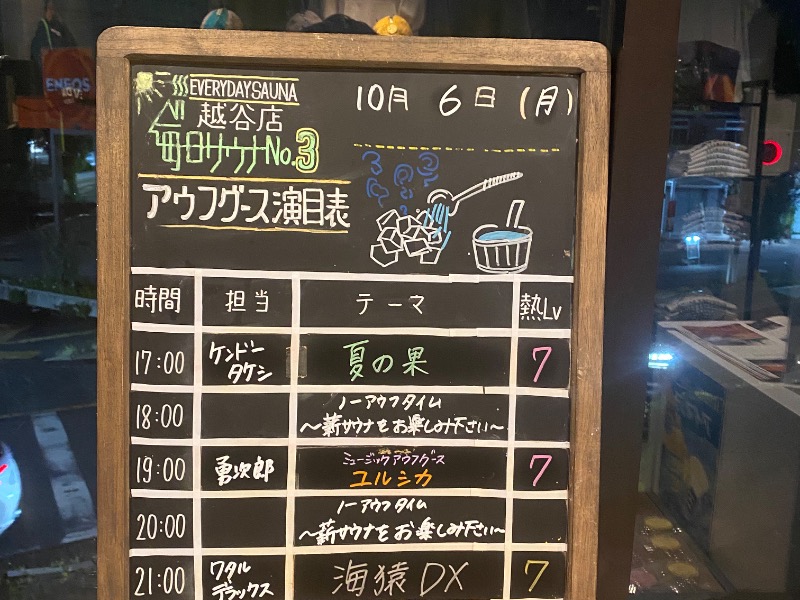 ENEOS
EVERYDAYSAUNA
越谷店
毎日サウナNo.3
10月 6日 (月)
アウフグース演目表
時間 担当 テーマ 熱Lv
17:00 ケンドー タケシ 夏の果 7
18:00 ノーアウフタイム
~薪サウナをお楽しみ下さい~
19:00 勇次郎 ミュージックアウフグース
ユルシカ 7
20:00 ノーアウフタイム
~薪サウナをお楽しみ下さい~
21:00 ワタル デラックス 海猿DX 7